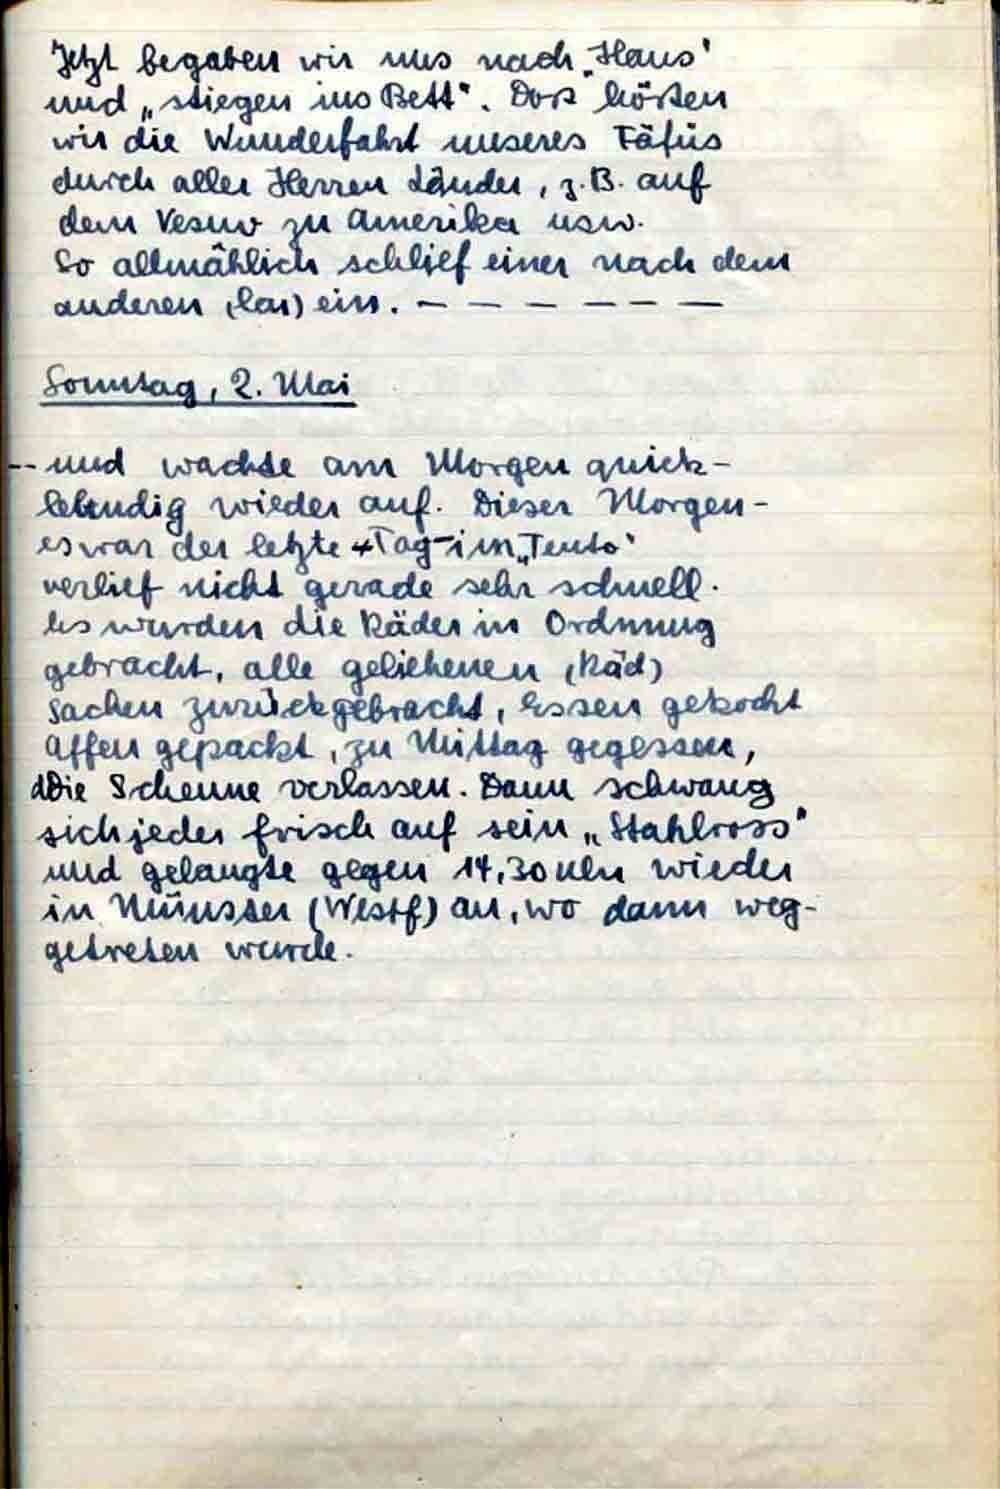 Jetzt begaben wir uns nach „Haus'
und „stiegen ins Bett". Dort hörten
wir die Wunderfahrt unseres Fäfüs
durch aller Herren Länder, z.B. auf
dem Vesuv zu Amerika usw.
So allmählich schlief einer nach dem
anderen (lar) ein. – – – – – –
Sonntag, 2. Mai
-- und wachte am Morgen quick-
lebendig wieder auf. Dieser Morgen -
es war der letzte Tag - im „Tento'
verlief nicht gerade sehr schnell.
Es wurden die Räder in Ordnung
gebracht, alle geliehenen (Räd)
Sachen zurückgebracht, Essen gekocht
Affen gepackt, zu Mittag gegessen,
die Scheune verlassen. Dann schwang
sich jeder frisch auf sein „Stahlross"
und gelangte gegen 14,30 Uhr wieder
in Münster (Westf) an, wo dann weg-
getreten wurde.